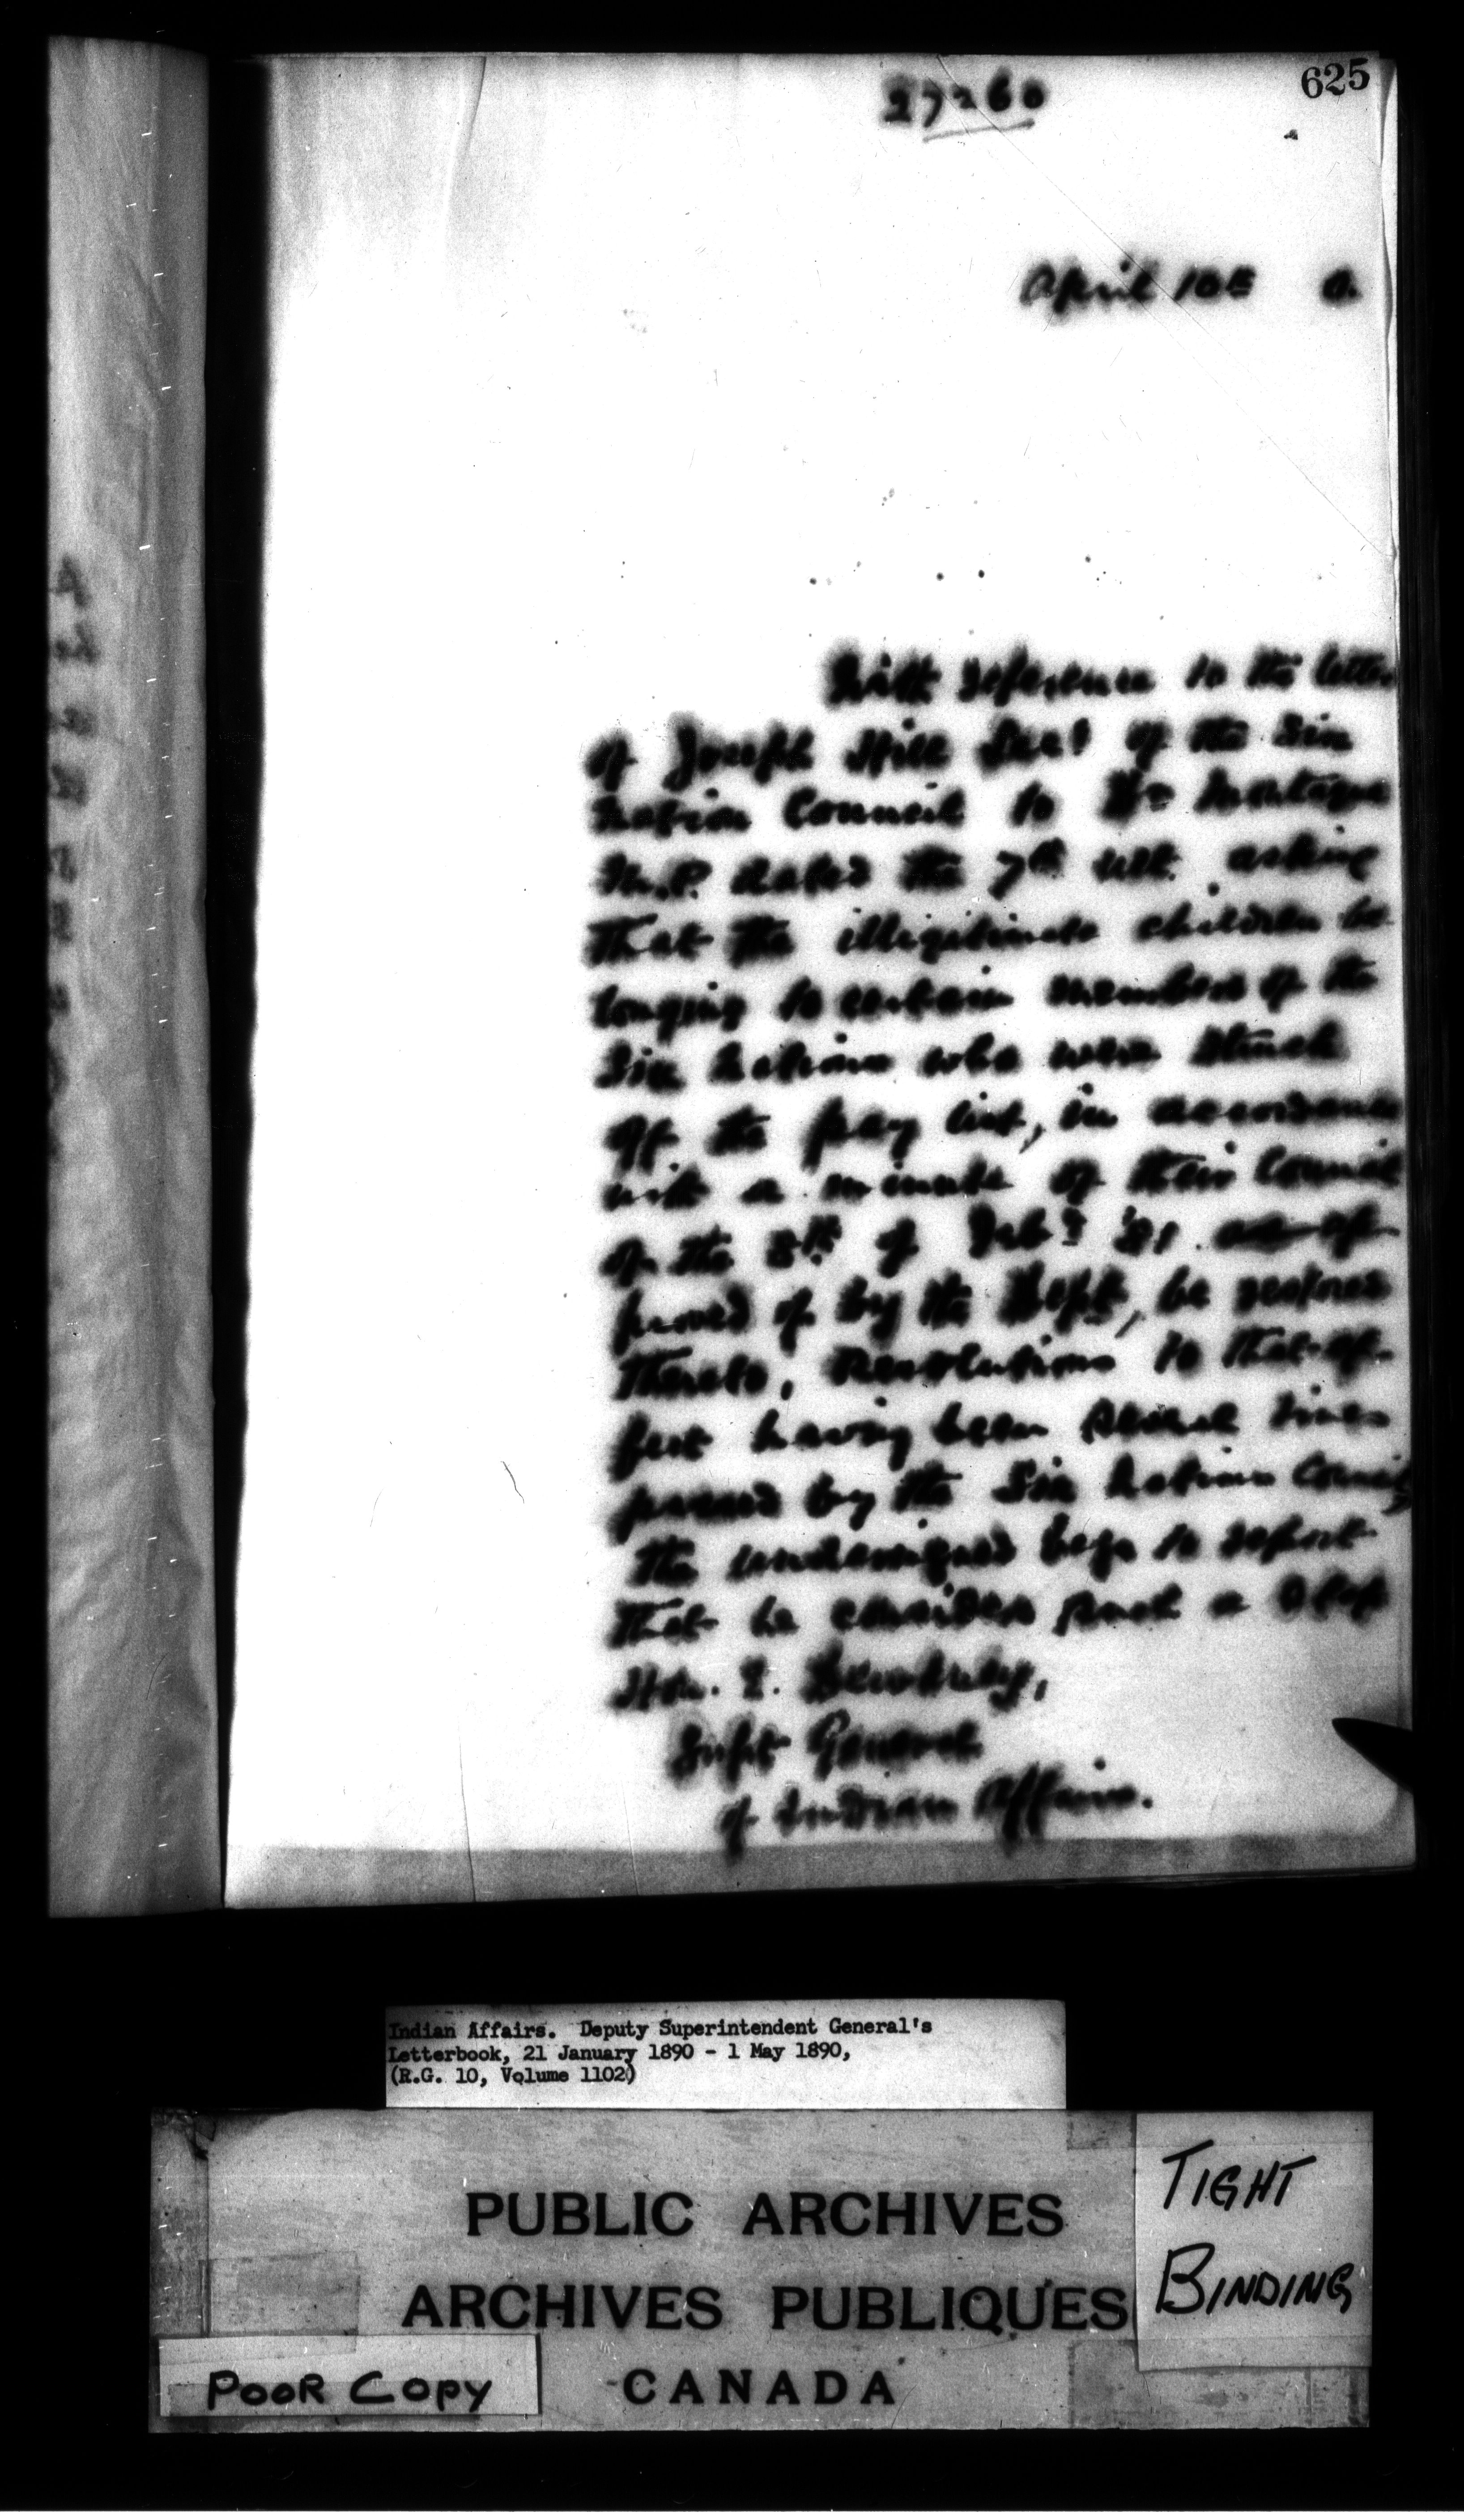 625
27260
April 10th 0.
With reference to the letter
of Joseph Hill Secy of the Six
Nation Council to Dr Montague
M.P. dated the 7th ult. asking
that the illegitimate children be-
longing to certain members of the
Six Nations who were struck
off the pay list, in accordance
with a minute of their Council
of the 8th of Feby '81 as ap-
proved of by the Dept, be restored
thereto, resolutions to that ef-
fect having been several times
passed by the Six Nations Council,
the undersigned begs to report
that he considers such a step
Hon. E. Dewdney,
Supt General
of Indian Affairs.
Indian Affairs. Deputy Superintendent General's
Letterbook, 21 January 1890 - 1 May 1890,
(R.G. 10, Volume 1102)
PUBLIC ARCHIVES
ARCHIVES PUBLIQUES
CANADA
TIGHT
BINDING
POOR COPY